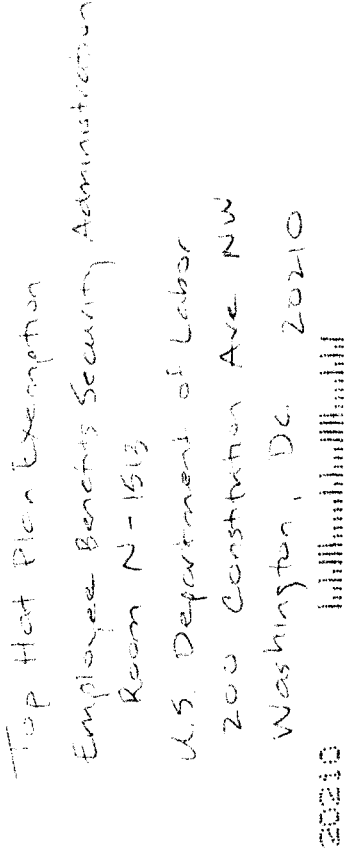 Top Hat Plan Exemption
Employee Benefits Security Administration
Room N-1513
U.S. Department of Labor
200 Constitution Ave NW
Washington, DC. 20210
20210